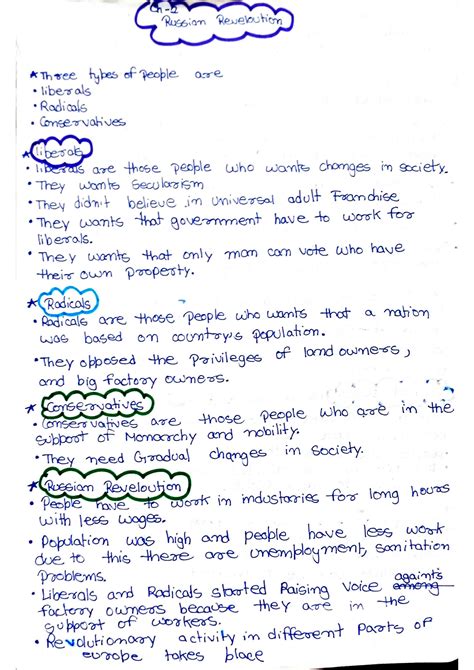 Ch-2
Russian Reveloution
★ Three types of People are
• liberals
• Radicals
• Conservatives
★ liberals
• liberals are those people who wants changes in society.
• They wants Secularism
• They didn't believe in Universal adult Franchise
• They wants that government have to work for
liberals.
• They wants that only man can vote who have
their own property.
★ Radicals
• Radicals are those people who wants that a nation
was based on country's population.
• They opposed the Privileges of land owners,
and big factory owners.
★ Conservatives
• Conservatives are those people who are in the
support of Monarchy and nobility.
• They need Gradual changes in Society.
★ Russian Reveloution
• People have to work in industaries for long hours
with less wages.
• Population was high and people have less work
due to this there are unemployment, sanitation
Problems.
• Liberals and Radicals started Raising Voice among againts
factory owners because they are in the
support of workers.
• Revolutionary activity in different Parts of
europe takes place